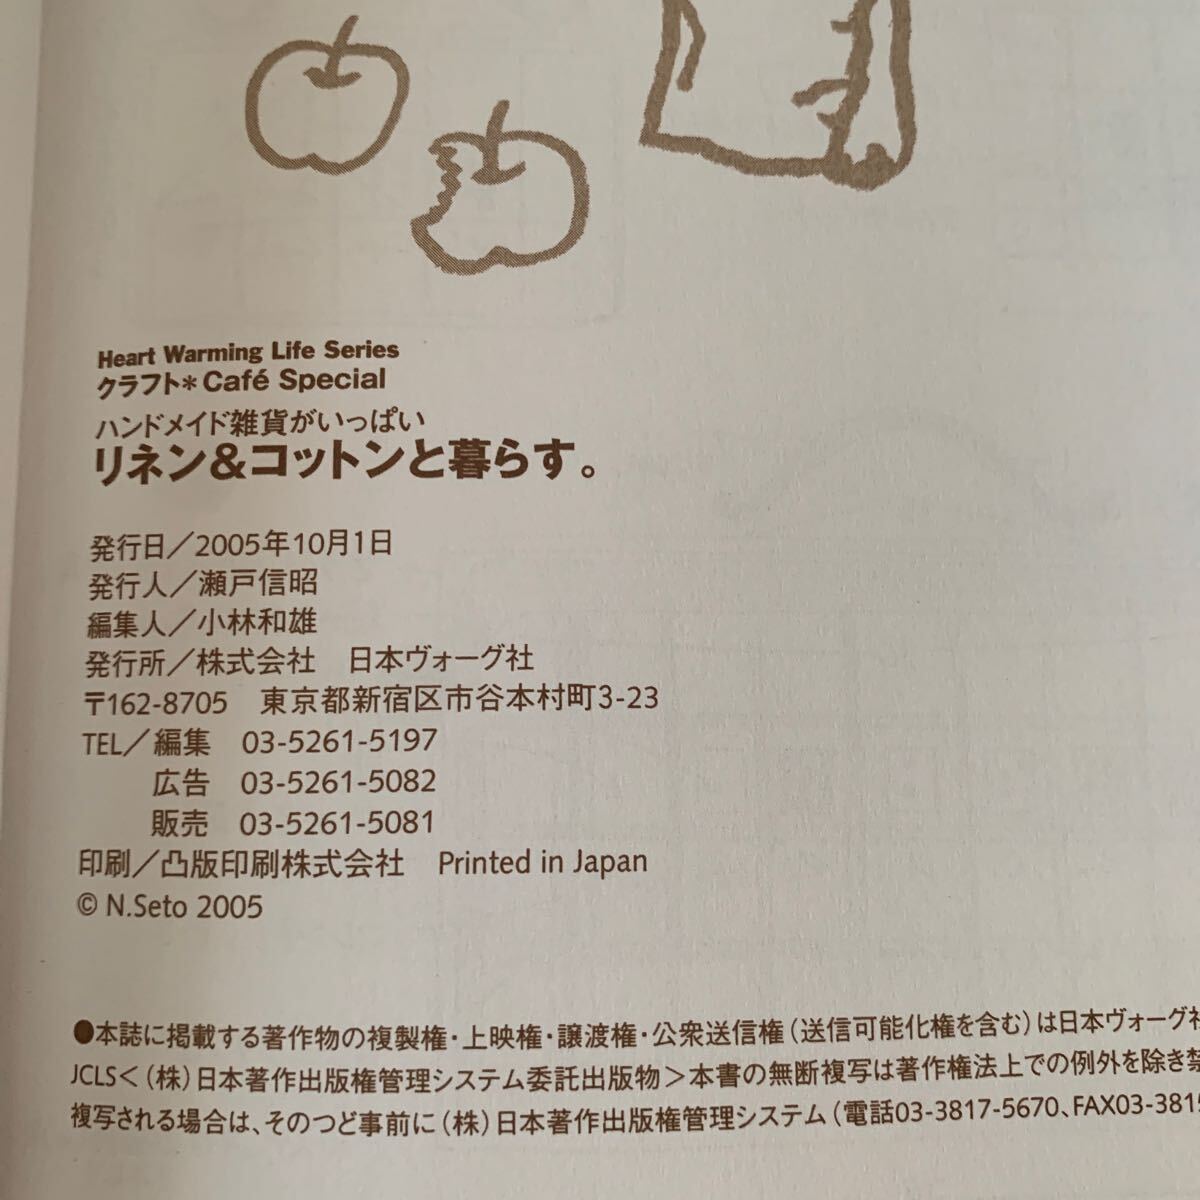 Heart Warming Life Series
クラフト*Café Special
ハンドメイド雑貨がいっぱい
リネン&コットンと暮らす。
発行日/2005年10月1日
発行人/瀬戸信昭
編集人/小林和雄
発行所/株式会社 日本ヴォーグ社
〒162-8705 東京都新宿区市谷本村町3-23
TEL/編集 03-5261-5197
広告 03-5261-5082
販売 03-5261-5081
印刷/凸版印刷株式会社 Printed in Japan
© N.Seto 2005
●本誌に掲載する著作物の複製権・上映権・譲渡権・公衆送信権(送信可能化権を含む)は日本ヴォーグ社
JCLS<(株)日本著作出版権管理システム委託出版物>本書の無断複写は著作権法上での例外を除き禁
複写される場合は、そのつど事前に(株)日本著作出版権管理システム(電話03-3817-5670、FAX03-3815